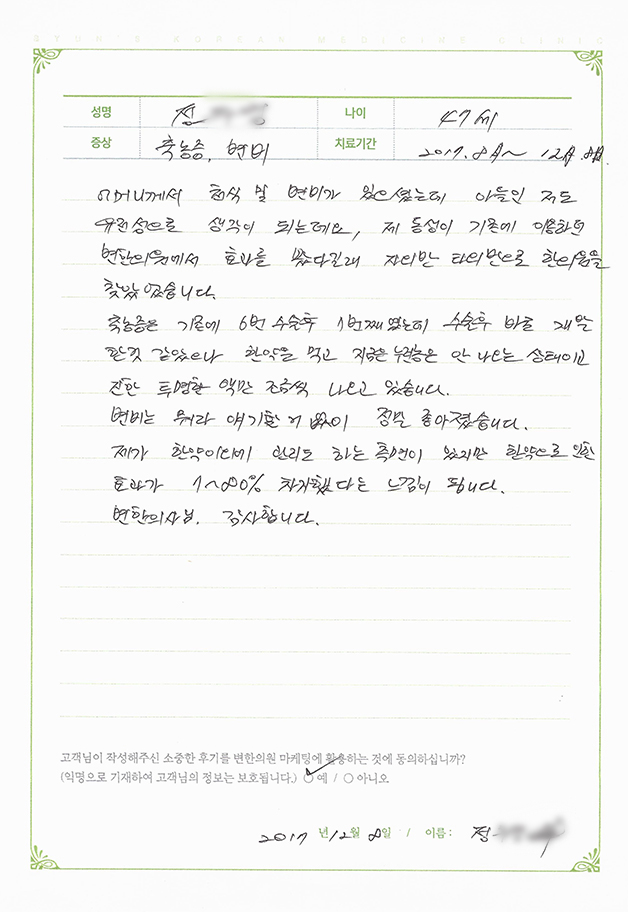 BYUN'S KOREAN MEDICINE CLINIC
성명 정 나이 47세
증상 축농증, 변비 치료기간 2017. 8月~ 12月
어머니께서 천식 및 변비가 있으셨는데 아들인 저도
유전성으로 생각이 되는데요, 제 동생이 기존에 이용하던
변한의원에서 효과를 봤다길래 자의반 타의반으로 한의원을
찾았었습니다.
축농증은 기존에 6번 수술후 7번째였는데 수술후 바로 재발
한것 같았으나 한약을 먹고 지금은 누런농은 안 나오는 상태이고
진한 투명한 액만 조금씩 나오고 있습니다.
변비는 뭐라 얘기할거 없이 정말 좋아졌습니다.
제가 한약이외에 관리도 하는 측면이 있지만 한약으로 인한
효과가 7~80% 차지했다는 느낌이 됩니다.
변한의사님. 감사합니다.
고객님이 작성해주신 소중한 후기를 변한의원 마케팅에 활용하는 것에 동의하십니까?
(익명으로 기재하여 고객님의 정보는 보호됩니다.) ○ 예 / ○ 아니오
2017 년 12 월 8 일 / 이름 : 정